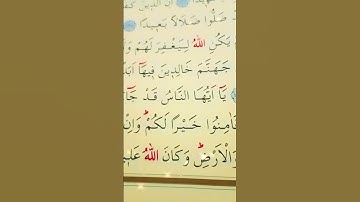 ضَلُّوا ضَلَالاً بَعِيداً
يَكُنِ اللّٰهُ لِيَغْفِرَ لَهُمْ وَ
جَهَنَّمَ خَالِدٖينَ فٖيهَٓا اَبَداً
يَٓا اَيُّهَا النَّاسُ قَدْ جَٓا
فَاٰمِنُوا خَيْراً لَكُمْ وَاِنْ
وَالْاَرْضِ وَكَانَ اللّٰهُ عَلٖي